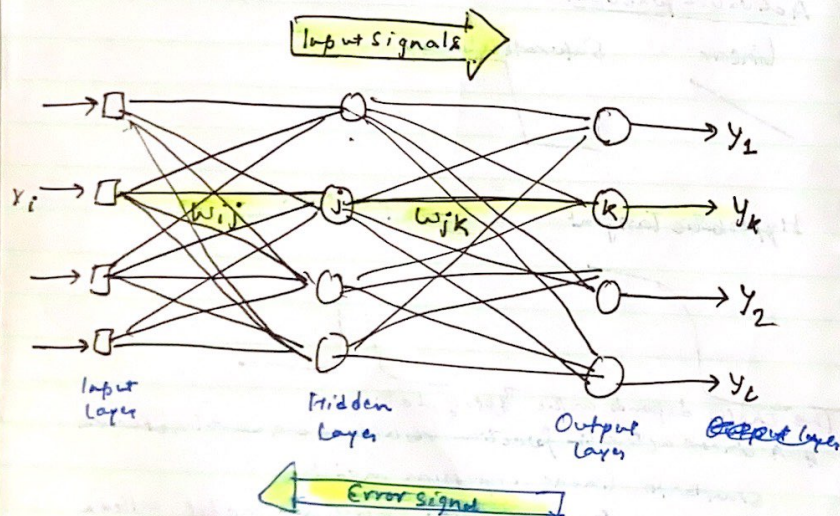 Input Signals
y1
xi
wij
j
wjk
k
yk
y2
yt
Input
Layer
Hidden
Layer
Output
Layer
layer
Error signal